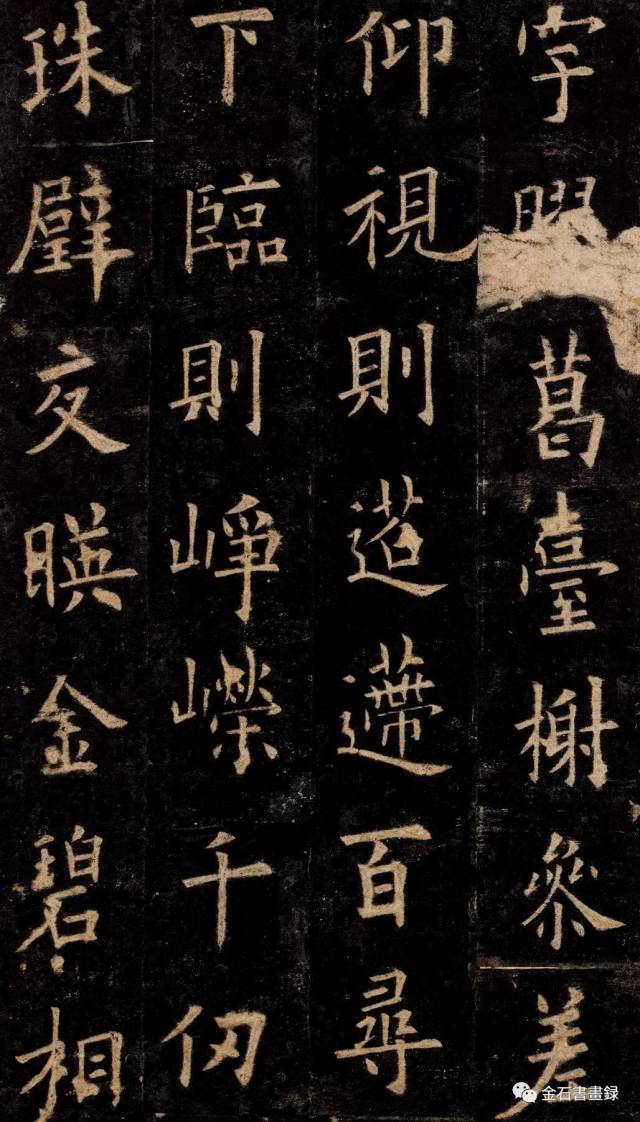 宇葛臺榭叅差
仰視則迢遰百尋
下臨則崢嶸千仞
珠壁交暎金碧相
金石書畫録